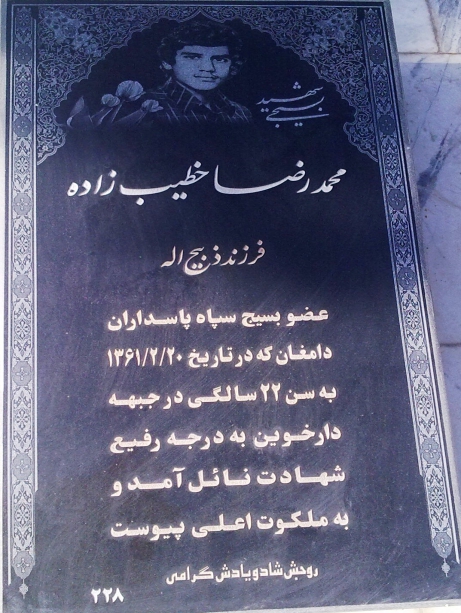 شهید
بسیجی
محمدرضا خطیب زاده
فرزند ذبیح اله
عضو بسیج سپاه پاسداران
دامغان که در تاریخ ۱۳۶۱/۲/۲۰
به سن ۲۲ سالگی در جبهه
دارخوین به درجه رفیع
شهادت نائل آمد و
به ملکوت اعلی پیوست
روحش شاد و یادش گرامی
۲۲۸